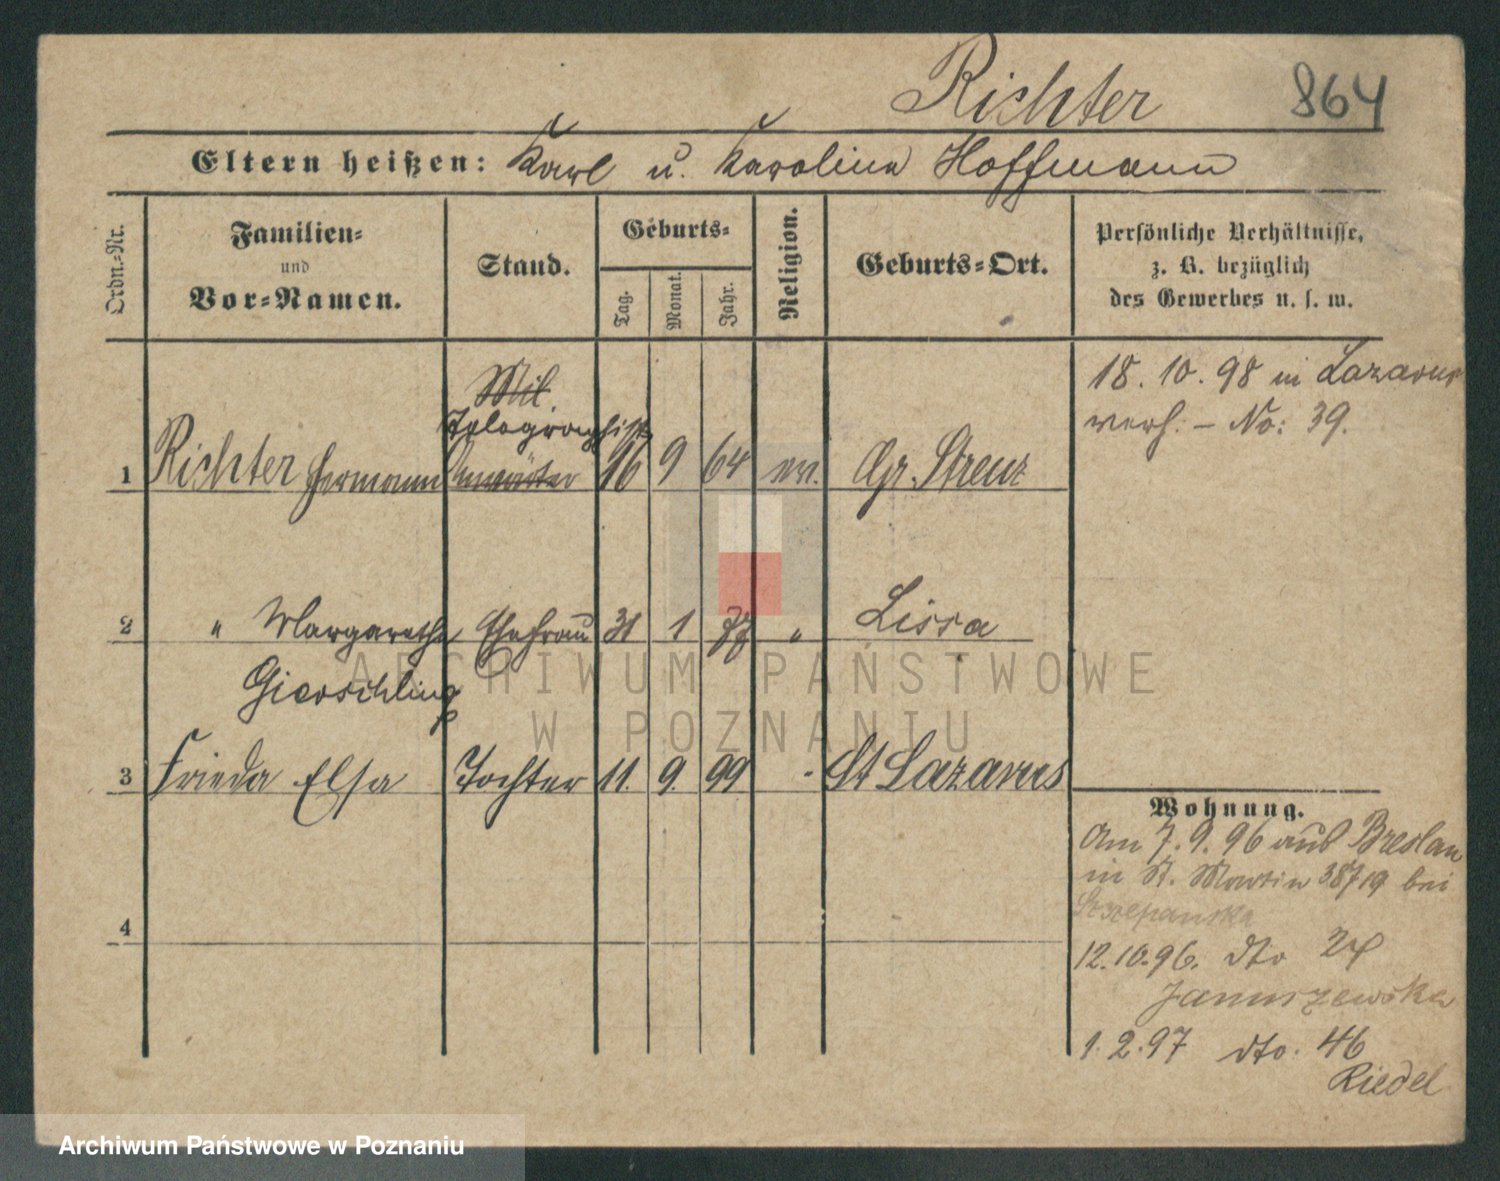 Richter 864
Eltern heißen: Karl u. Karoline Hoffmann
Ordn.-Nr.
Familien-
und
Vor-Namen.
Stand.
Geburts-
Tag.
Monat.
Jahr.
Religion.
Geburts-Ort.
Persönliche Verhältnisse,
z. B. bezüglich
des Gewerbes u. s. w.
18. 10. 98 in Lazarus
verh. – No: 39.
Mil.
Telegraphist
1 Richter Hermann Anwärter 16 9 64 ev. Gr. Strenz
2 " Margarethe Ehefrau 31 1 77 " Lissa
Gierschling
3 Frieda Elsa Tochter 11. 9. 99 " St Lazarus
4
Wohnung.
Am 7. 9. 96 aus Breslau
in St. Martin bei
Szczepanska
12. 10. 96. dto 24
Januszewska
1. 2. 97 dto. 46
Riedel
ARCHIWUM PAŃSTWOWE
W POZNANIU
Archiwum Państwowe w Poznaniu